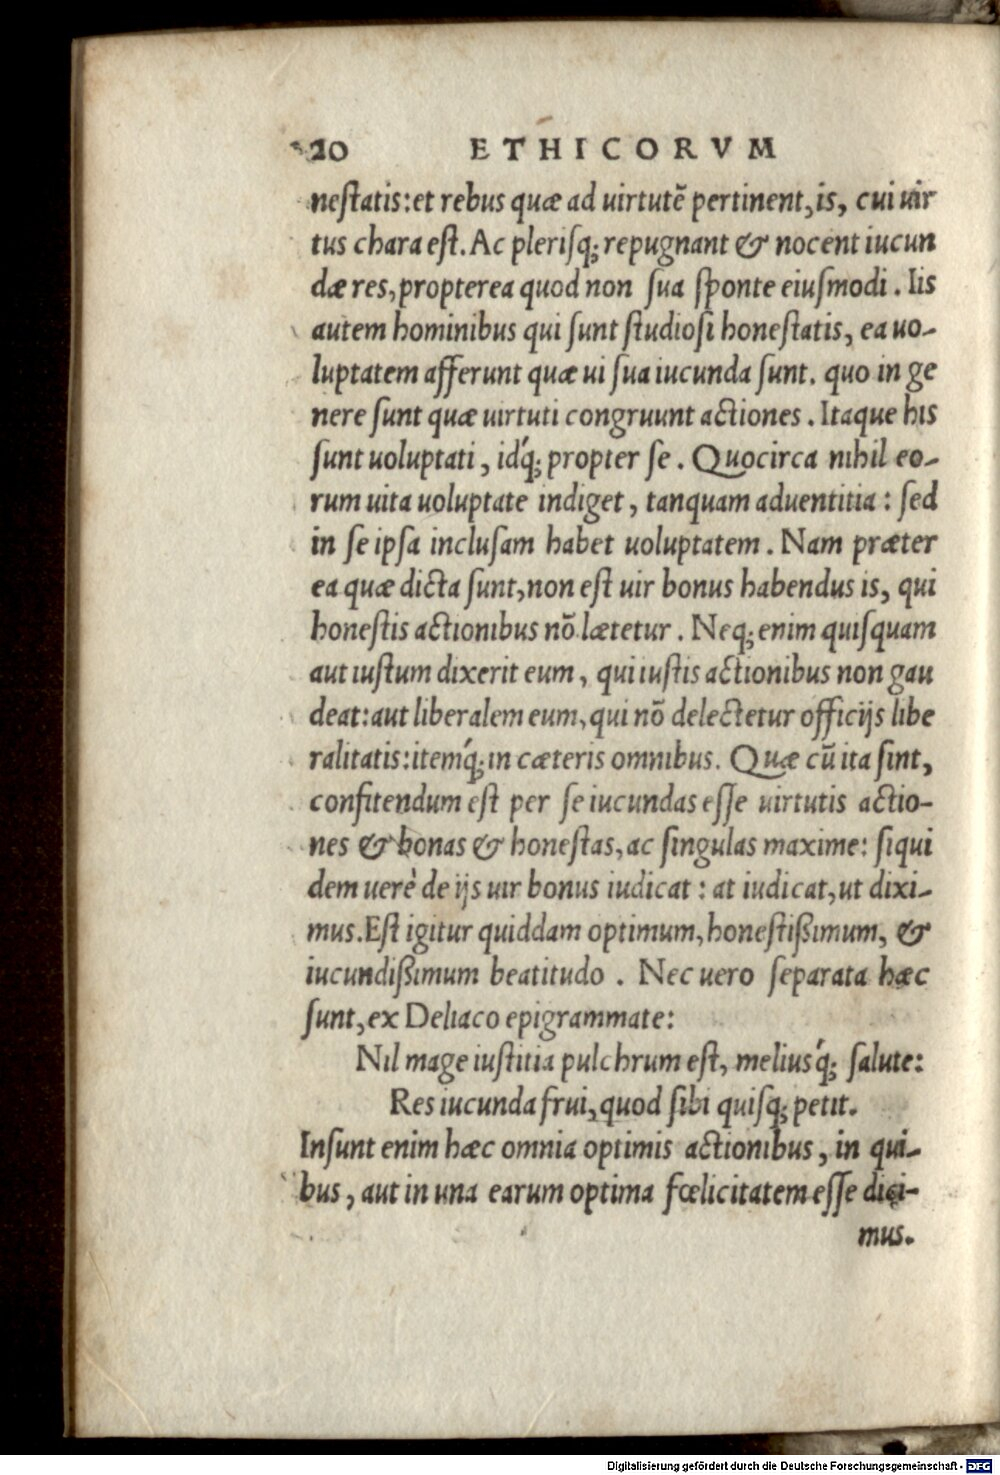 20 ETHICORVM
neſtatis:et rebus quæ ad uirtutē pertinent, is, cui uir
tus chara eſt. Ac pleriſq; repugnant & nocent iucun
dæ res, propterea quod non ſua ſponte eiuſmodi. Iis
autem hominibus qui ſunt ſtudioſi honeſtatis, ea uo-
luptatem afferunt quæ ui ſua iucunda ſunt. quo in ge
nere ſunt quæ uirtuti congruunt actiones. Itaque his
ſunt uoluptati, idq́; propter ſe. Quocirca nihil eo-
rum uita uoluptate indiget, tanquam aduentitia: ſed
in ſe ipſa incluſam habet uoluptatem. Nam præter
ea quæ dicta ſunt, non eſt uir bonus habendus is, qui
honeſtis actionibus nō lætetur. Neq; enim quiſquam
aut iuſtum dixerit eum, qui iuſtis actionibus non gau
deat: aut liberalem eum, qui nō delectetur officijs libe
ralitatis: itemq́; in cæteris omnibus. Quæ cū ita ſint,
confitendum eſt per ſe iucundas eſſe uirtutis actio-
nes & bonas & honeſtas, ac ſingulas maxime: ſiqui
dem uerè de ijs uir bonus iudicat: at iudicat, ut dixi-
mus. Eſt igitur quiddam optimum, honeſtißimum, &
iucundißimum beatitudo. Nec uero ſeparata hæc
ſunt, ex Deliaco epigrammate:
Nil mage iuſtitia pulchrum eſt, meliusq́; ſalute:
Res iucunda frui, quod ſibi quiſq; petit.
Inſunt enim hæc omnia optimis actionibus, in qui-
bus, aut in una earum optima fœlicitatem eſſe dici-
mus.
Digitalisierung gefördert durch die Deutsche Forschungsgemeinschaft - DFG